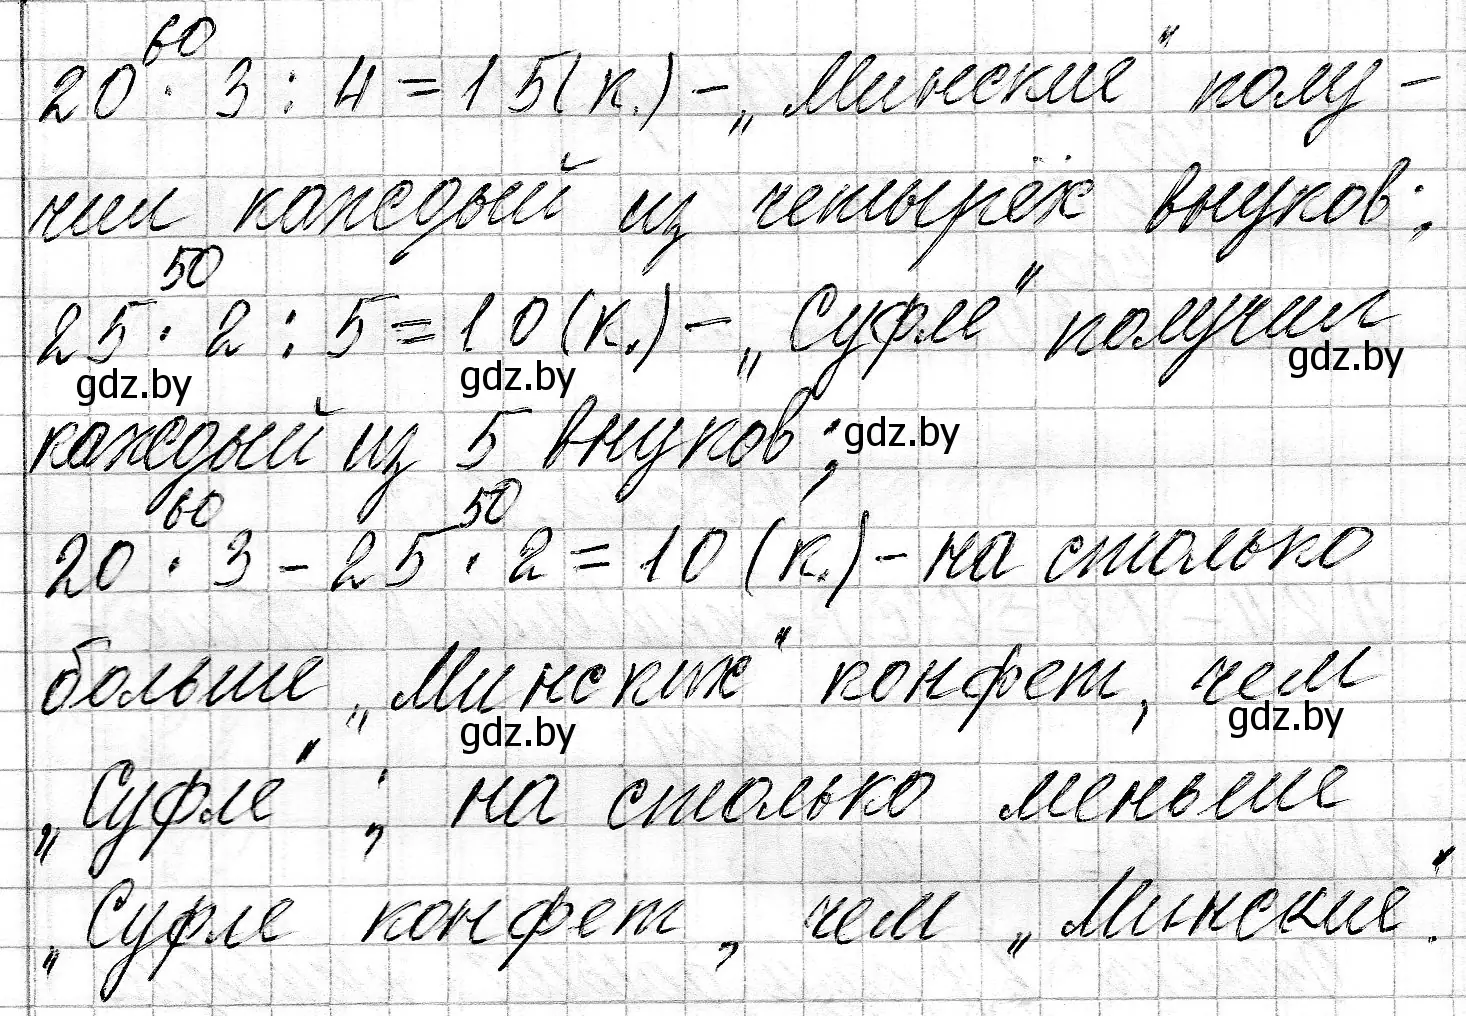 60
20 · 3 : 4 = 15 (к.) – „Минские" полу-
чил каждый из четырёх внуков;
50
25 · 2 : 5 = 10 (к.) – „Суфле" получил
gdz.by gdz.by gdz.by
каждый из 5 внуков; gdz.by
60 50
20 · 3 – 25 · 2 = 10 (к.) – на столько
больше „Минских" конфет, чем
gdz.by gdz.by
„Суфле"; на столько меньше
„Суфле конфет, чем „Минские".